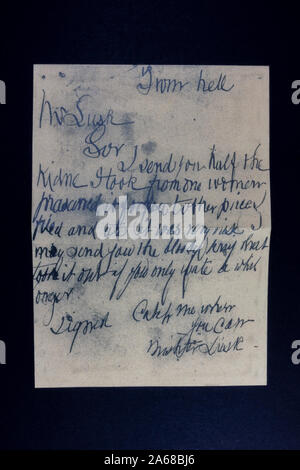 From hell
Mr Lusk
Sor
I send you half the
Kidne I took from one women
prasarved it for you tother piece
fried and ate it was very nise I
may send you the bloody knif that
took it out if you only wate a whil
longer
Signed Catch me when
you can
Mishter Lusk
alamy
2A68BJ6